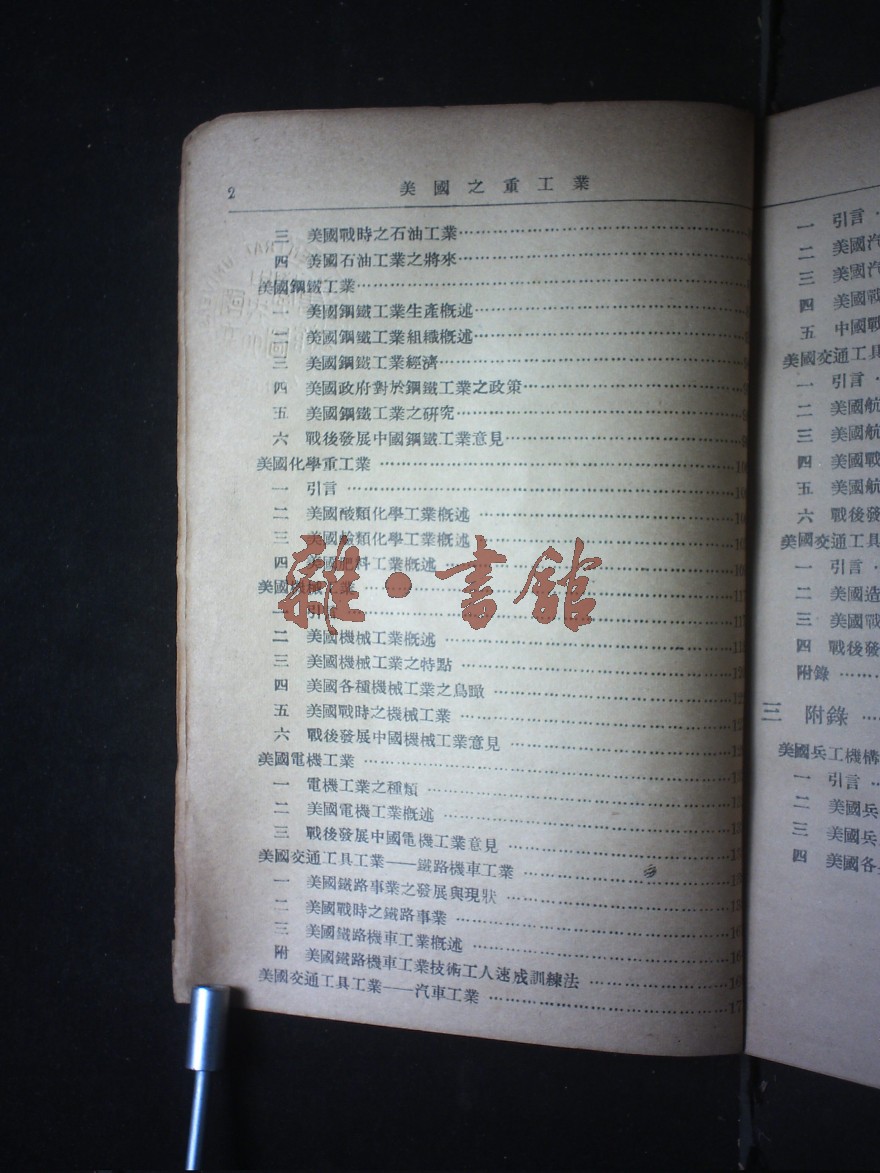 2
美國之重工業
三 美國戰時之石油工業
四 美國石油工業之將來
美國鋼鐵工業
一 美國鋼鐵工業生產概述
二 美國鋼鐵工業組織概述
三 美國鋼鐵工業經濟
四 美國政府對於鋼鐵工業之政策
五 美國鋼鐵工業之研究
六 戰後發展中國鋼鐵工業意見
美國化學重工業
一 引言
二 美國酸類化學工業概述
三 美國鹼類化學工業概述
四 美國肥料工業概述
美國機械工業
一 引言
二 美國機械工業概述
三 美國機械工業之特點
四 美國各種機械工業之鳥瞰
五 美國戰時之機械工業
六 戰後發展中國機械工業意見
美國電機工業
一 電機工業之種類
二 美國電機工業概述
三 戰後發展中國電機工業意見
美國交通工具工業——鐵路機車工業
一 美國鐵路事業之發展與現狀
二 美國戰時之鐵路事業
三 美國鐵路機車工業概述
附 美國鐵路機車工業技術工人速成訓練法
美國交通工具工業——汽車工業
雜·書館
一 引言
二 美國汽
三 美國汽
四 美國戰
五 中國戰
美國交通工具
一 引言
二 美國航
三 美國航
四 美國戰
五 美國航
六 戰後發
美國交通工具
一 引言
二 美國造
三 美國戰
四 戰後發
附錄
三 附錄
美國兵工機構
一 引言
二 美國兵
三 美國兵
四 美國各